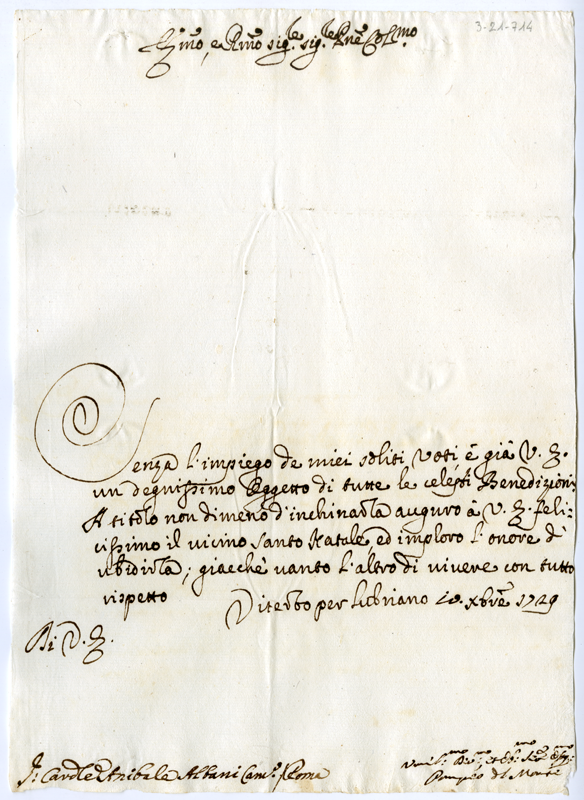 3-21-714
E.mo, e R.mo sig.re sig.re Pñe Col.mo
Senza l'impiego de miei soliti voti è già V. E.
un degnissimo Oggetto di tutte le celesti Benedizioni.
A titolo non dimeno d'inchinarla auguro à V. E. feli:
cissimo il vicino Santo Natale ed imploro l'onore di
ubidirla; giacche vanto l'altro di vivere con tutto
rispetto Viterbo per Lubriano 10. Xbre 1729
Di V. E.
S.r Card.le Annibale Albani Cam.o / Roma
Umil.mo Div.mo et Obl.mo Ser.
Pompeo del Monte